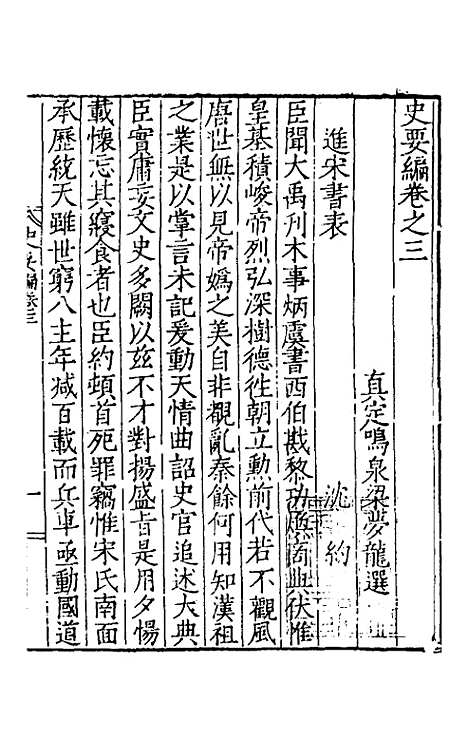 史要編卷之三
真定鳴泉梁夢龍選
進宋書表　沈約
臣聞大禹刋木事炳虞書西伯戡黎功煥商典伏惟
皇基積峻帝烈弘深樹德徃朝立勲前代若不觀風
唐世無以見帝媯之美自非覩亂秦餘何用知漢祖
之業是以掌言未記爰動天情曲詔史官追述大典
臣實庸妄文史多闕以兹不才對揚盛旨是用夕惕
載懷忘其寢食者也臣約頓首死罪竊惟宋氏南面
承歷統天雖世窮八主年减百載而兵車亟動國道
史要編卷三
一